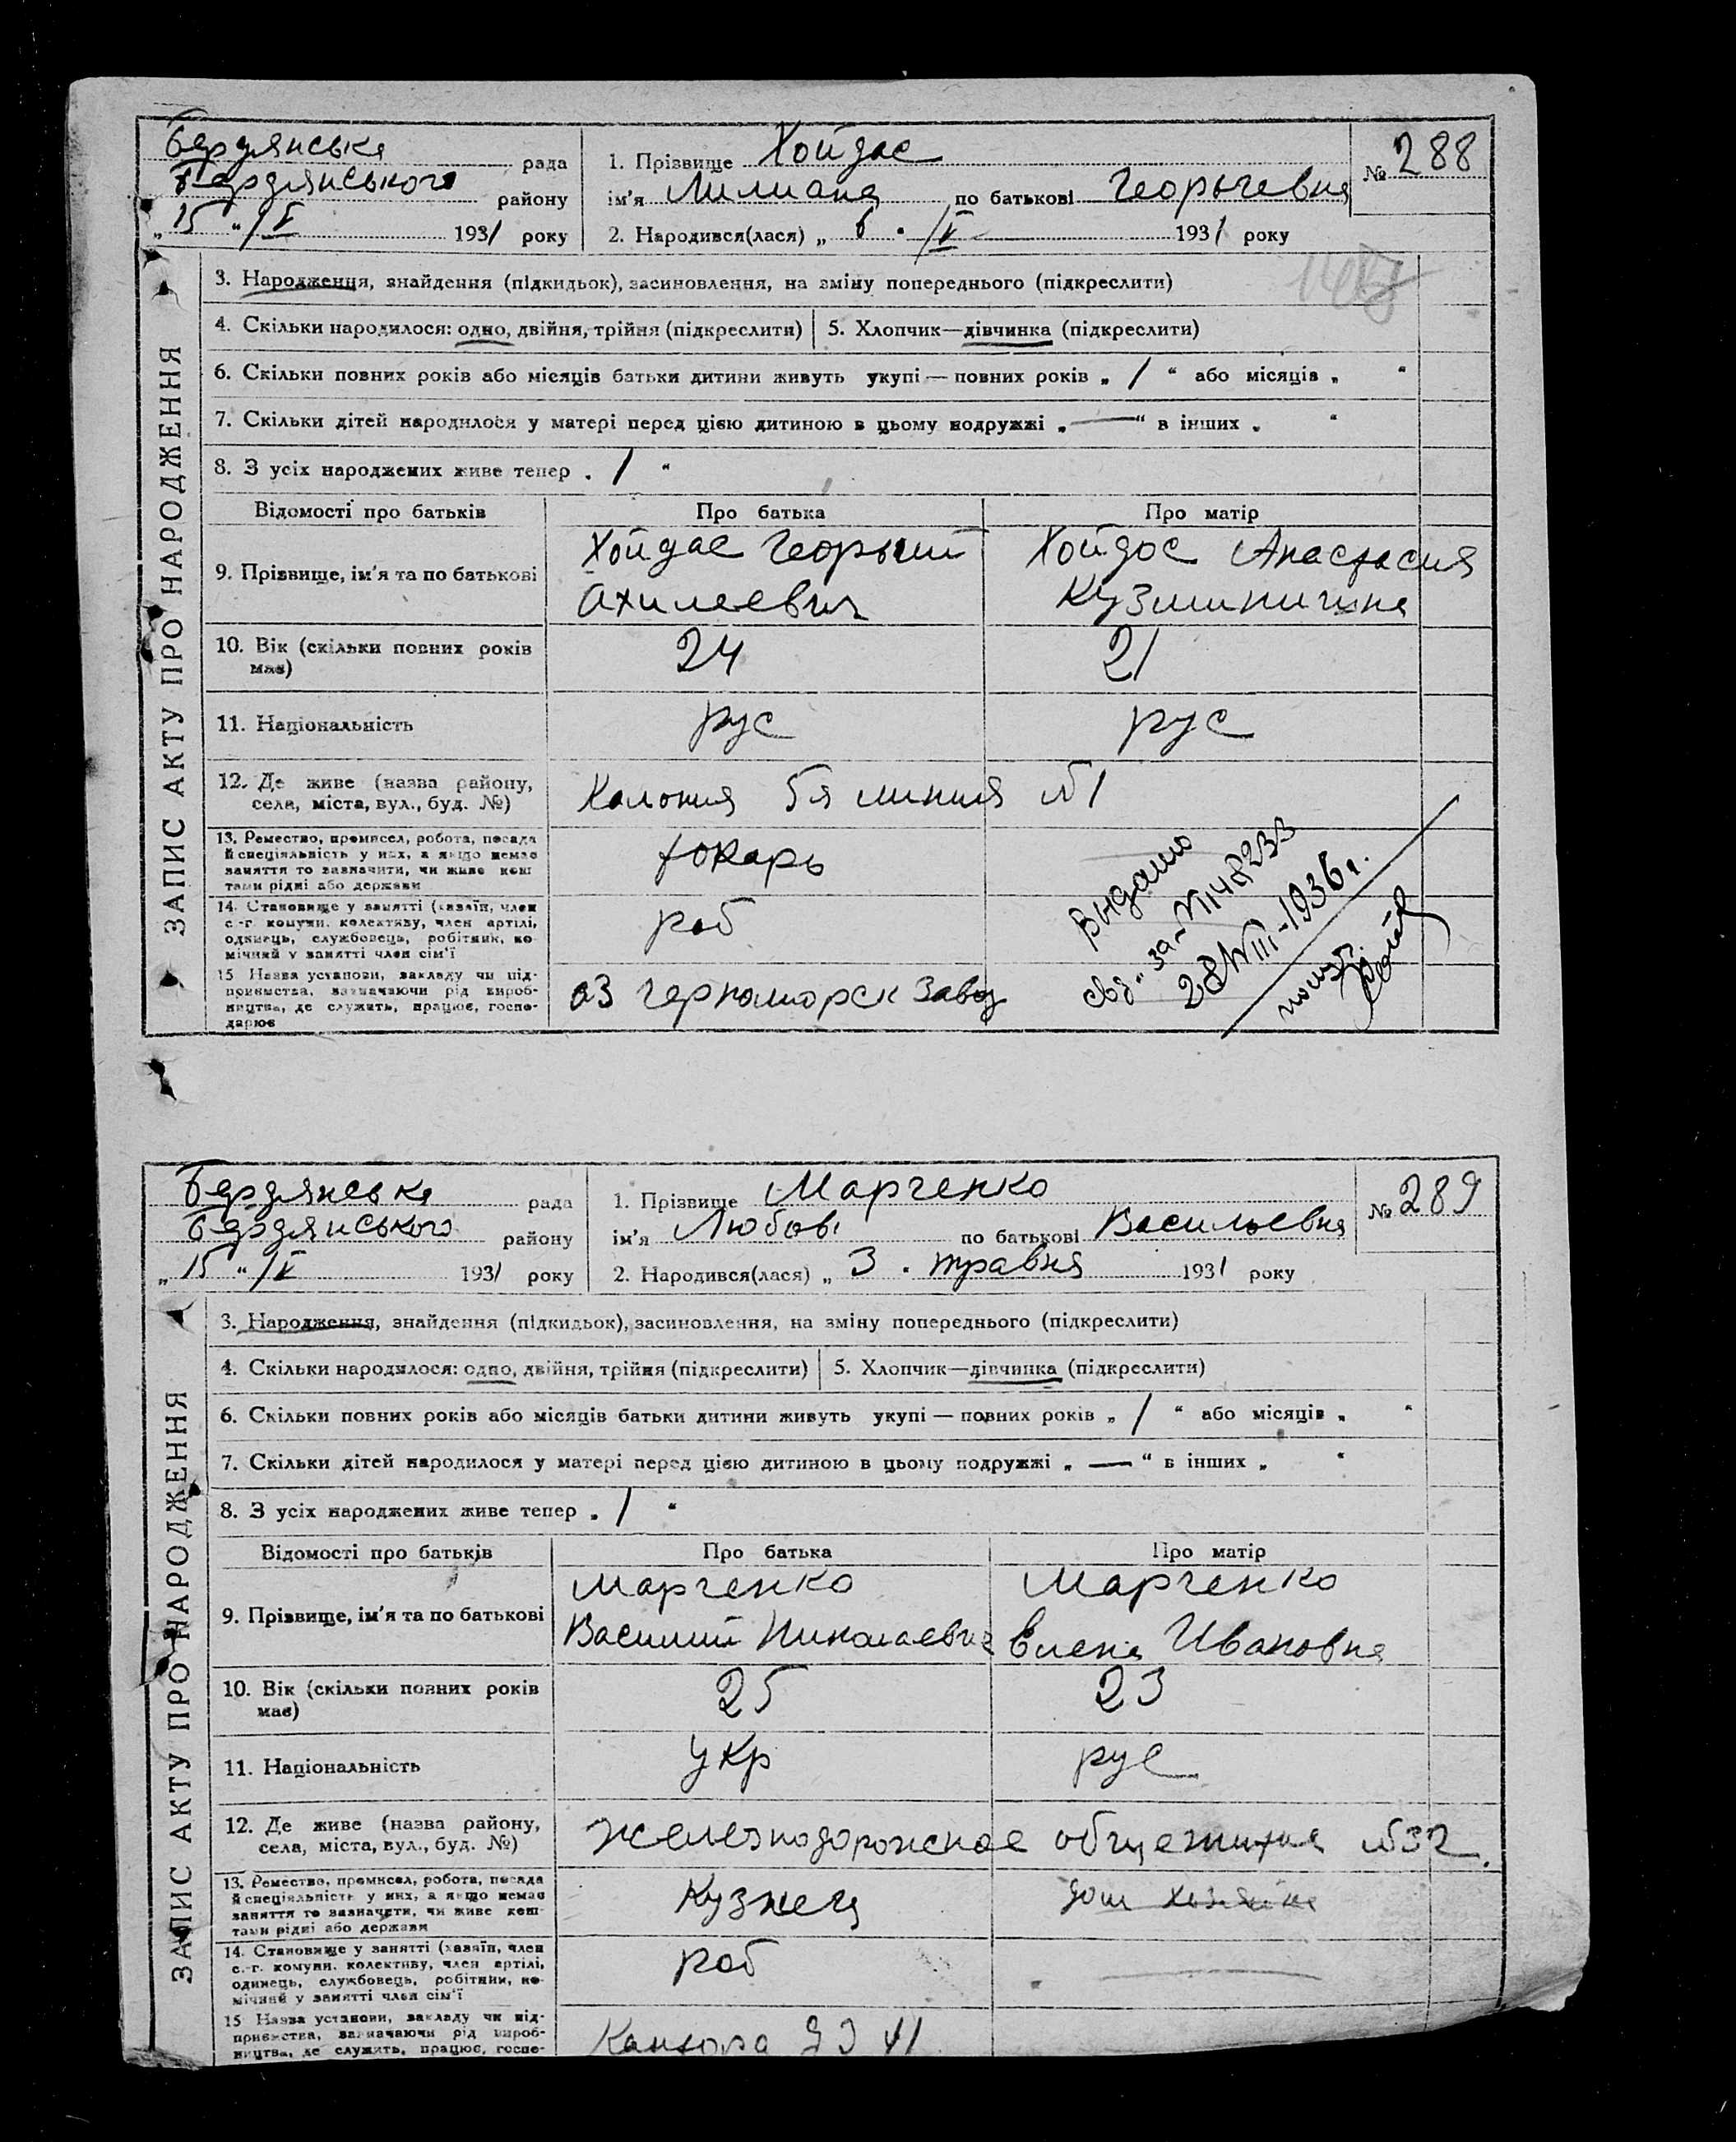 Бердянська рада
Бердянського району
„ 15 " /V 1931 року
1. Прізвище Хойдас
ім'я Лилиана по батькові Георгиевна
2. Народився(лася) „ 6 " /V 1931 року
№ 288
ЗАПИС АКТУ ПРО НАРОДЖЕННЯ
3. Народження, знайдення (підкидьок), засиновлення, на зміну попереднього (підкреслити)
4. Скільки народилося: одно, двійня, трійня (підкреслити) 5. Хлопчик—дівчинка (підкреслити)
6. Скільки повних років або місяців батьки дитини живуть укупі — повних років „ / " або місяців „ "
7. Скільки дітей народилося у матері перед цією дитиною в цьому подружжі „ — " в інших „ "
8. З усіх народжених живе тепер „ / "
Відомості про батьків Про батька Про матір
9. Прізвище, ім'я та по батькові
Хойдас Георгий
Ахилеевич
Хойдос Анастасия
Кузьминична
10. Вік (скільки повних років
має)
24 21
11. Національність рус рус
12. Де живе (назва району,
села, міста, вул., буд. №)
Колония 5я линия №1
13. Ремество, промисел, робота, посада
й спеціяльність у них, а якщо немає
заняття то зазначити, чи живе кош
тами рідні або держави
токарь
14. Становище у занятті (хазяїн, член
с.-г. комуни, колективу, член артілі,
одинець, службовець, робітник, по-
мічний у занятті член сім'ї
раб
15 Назва установи, закладу чи під-
приємства, зазначаючи рід вироб-
ництва, де служить, працює, госпо-
дарює
аз Черноморск завод
Выдано
свд. за
28/VIII-1936г.
Бердянська рада
Бердянського району
„ 15 " /V 1931 року
1. Прізвище Марченко
ім'я Любовь по батькові Васильевна
2. Народився(лася) „ 3 " травня 1931 року
№ 289
ЗАПИС АКТУ ПРО НАРОДЖЕННЯ
3. Народження, знайдення (підкидьок), засиновлення, на зміну попереднього (підкреслити)
4. Скільки народилося: одно, двійня, трійня (підкреслити) 5. Хлопчик—дівчинка (підкреслити)
6. Скільки повних років або місяців батьки дитини живуть укупі — повних років „ / " або місяців „ "
7. Скільки дітей народилося у матері перед цією дитиною в цьому подружжі „ — " в інших „ "
8. З усіх народжених живе тепер „ / "
Відомості про батьків Про батька Про матір
9. Прізвище, ім'я та по батькові
Марченко
Василий Николаевич
Марченко
Елена Ивановна
10. Вік (скільки повних років
має)
25 23
11. Національність укр рус
12. Де живе (назва району,
села, міста, вул., буд. №)
Железнодорожное общежития №32.
13. Ремество, промисел, робота, посада
й спеціяльність у них, а якщо немає
заняття то зазначити, чи живе кош-
тами рідні або держави
Кузнец дом хозяйка
14. Становище у занятті (хазяїн, член
с.-г. комуни, колективу, член артілі,
одинець, службовець, робітник, по-
мічний у занятті член сім'ї
раб
15 Назва установи, закладу чи під-
приємства, зазначаючи рід вироб-
ництва, де служить, працює, госпо-
Контора